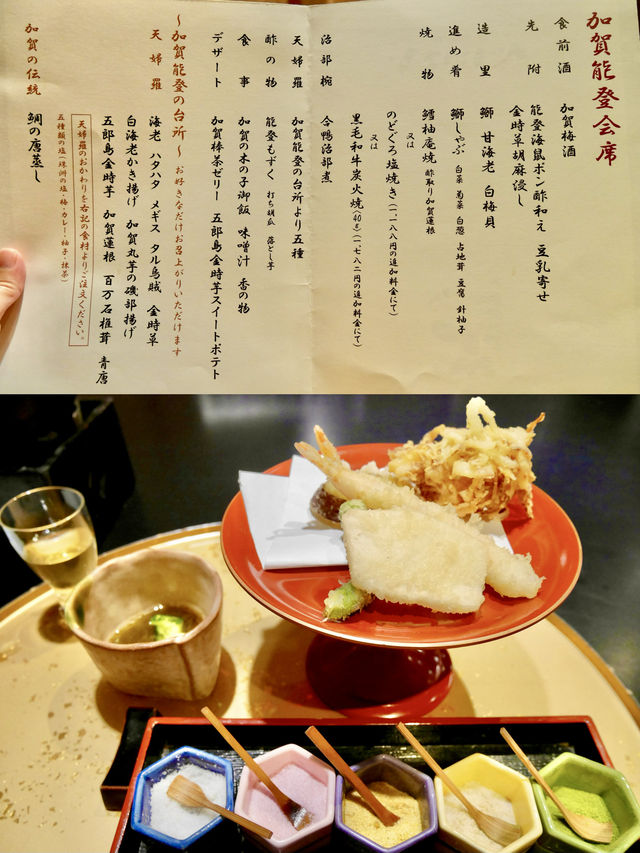 加賀能登会席
食前酒 加賀梅酒
先附 能登海鼠ポン酢和え 豆乳寄せ
金時草胡麻浸し
造里 鰤 甘海老 白梅貝
進め肴 鰤しゃぶ 白菜 菊菜 白葱 占地茸 豆腐 針柚子
焼物 鱈柚庵焼 酢取り加賀蓮根
又は
のどぐろ塩焼き(一、一八八円の追加料金にて)
又は
黒毛和牛炭火焼(40g)(一、七八二円の追加料金にて)
治部椀 合鴨治部煮
天婦羅 加賀能登の台所より五種
酢の物 能登もずく 打ち胡瓜 落とし芋
食事 加賀の木の子御飯 味噌汁 香の物
デザート 加賀棒茶ゼリー 五郎島金時芋スイートポテト
~加賀能登の台所~ お好きなだけお召上がりいただけます
天婦羅 海老 ハタハタ メギス タル烏賊 金時草
白海老かき揚げ 加賀丸芋の磯部揚げ
五郎島金時芋 加賀蓮根 百万石椎茸 青唐
天婦羅のおかわりを右記の食材よりご注文ください。
五種類の塩(珠洲の塩・梅・カレー・柚子・抹茶)
加賀の伝統 鯛の唐蒸し